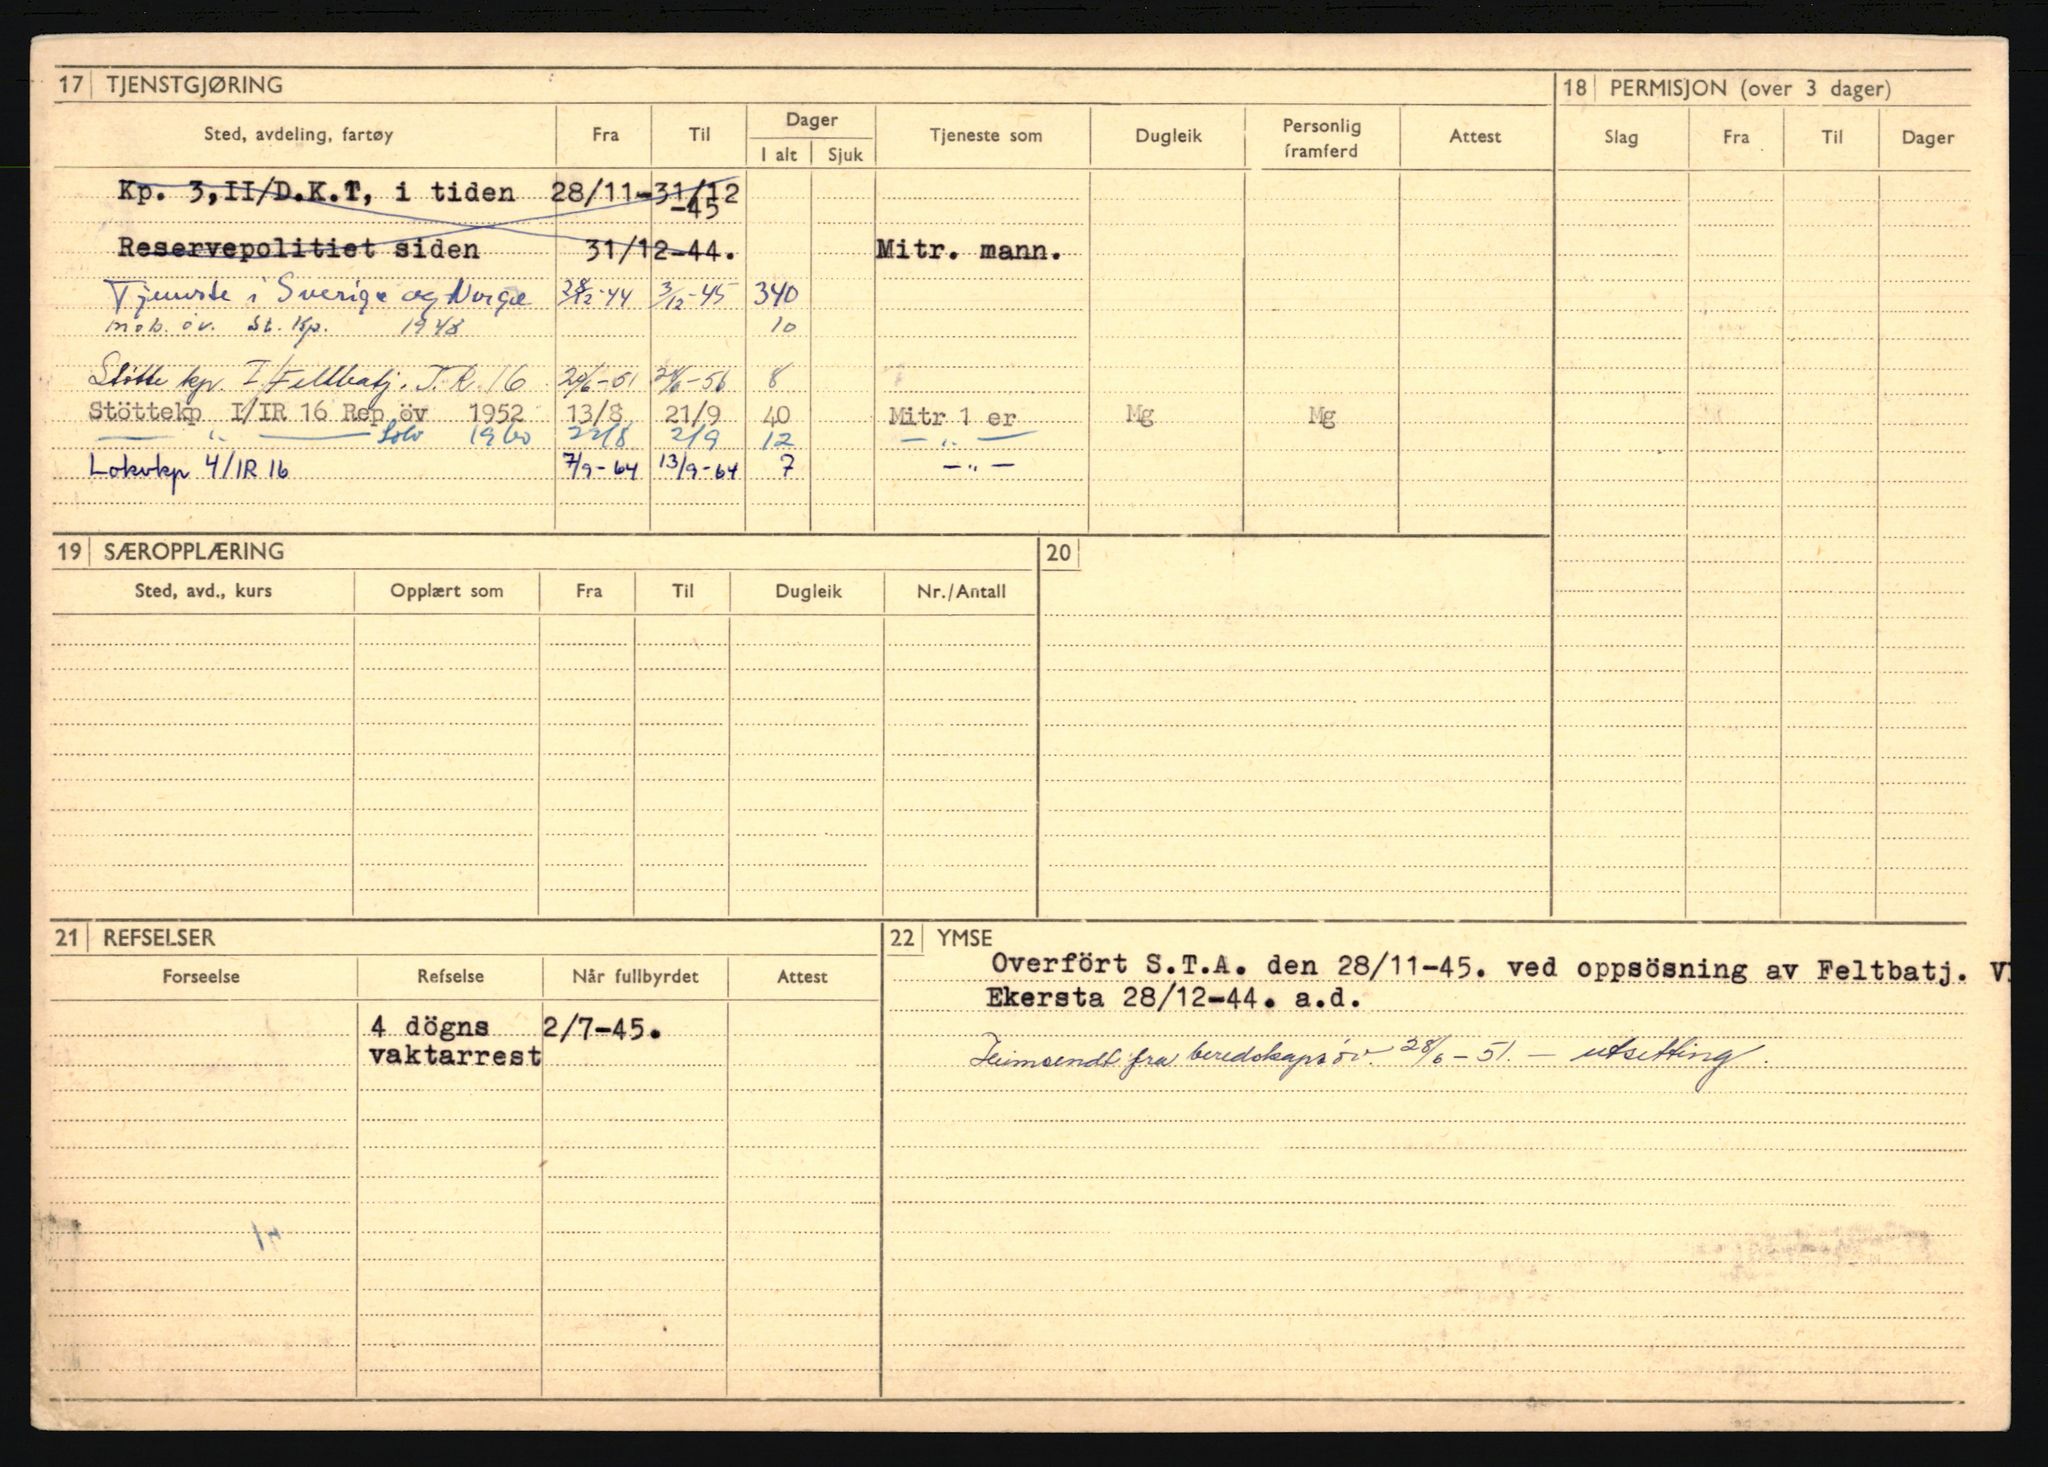 17 TJENSTGJØRING
18 PERMISJON (over 3 dager)
Sted, avdeling, fartøy Fra Til Dager I alt Sjuk Tjeneste som Dugleik Personlig framferd Attest
Slag Fra Til Dager
Kp. 3,II/D.K.T, i tiden 28/11-31/12
-45
Reservepolitiet siden 31/12-44. Mitr. mann.
Tjeneste i Sverige og Norge 28/12-44 3/12-45 340
mob. öv. St. Kp. 1948 10
Støtte kp. I/Feltbatj. I.R. 16 20/6-51 8
Stöttekp I/IR 16 Rep öv 1952 13/8 21/9 40 Mitr 1 er Mg Mg
— " — 1960 22/8 2/9 12 — " —
Lokvkp 4/IR 16 7/9-64 13/9-64 7 — " —
19 SÆROPPLÆRING
20
Sted, avd., kurs Opplært som Fra Til Dugleik Nr./Antall
21 REFSELSER
Forseelse Refselse Når fullbyrdet Attest
4 dögns 2/7-45.
vaktarrest
22 YMSE
Overfört S.T.A. den 28/11-45. ved oppsösning av Feltbatj. VI
Ekersta 28/12-44. a.d.
Heimsendt fra beredskapsöv. 28/6-51. - utsetting.